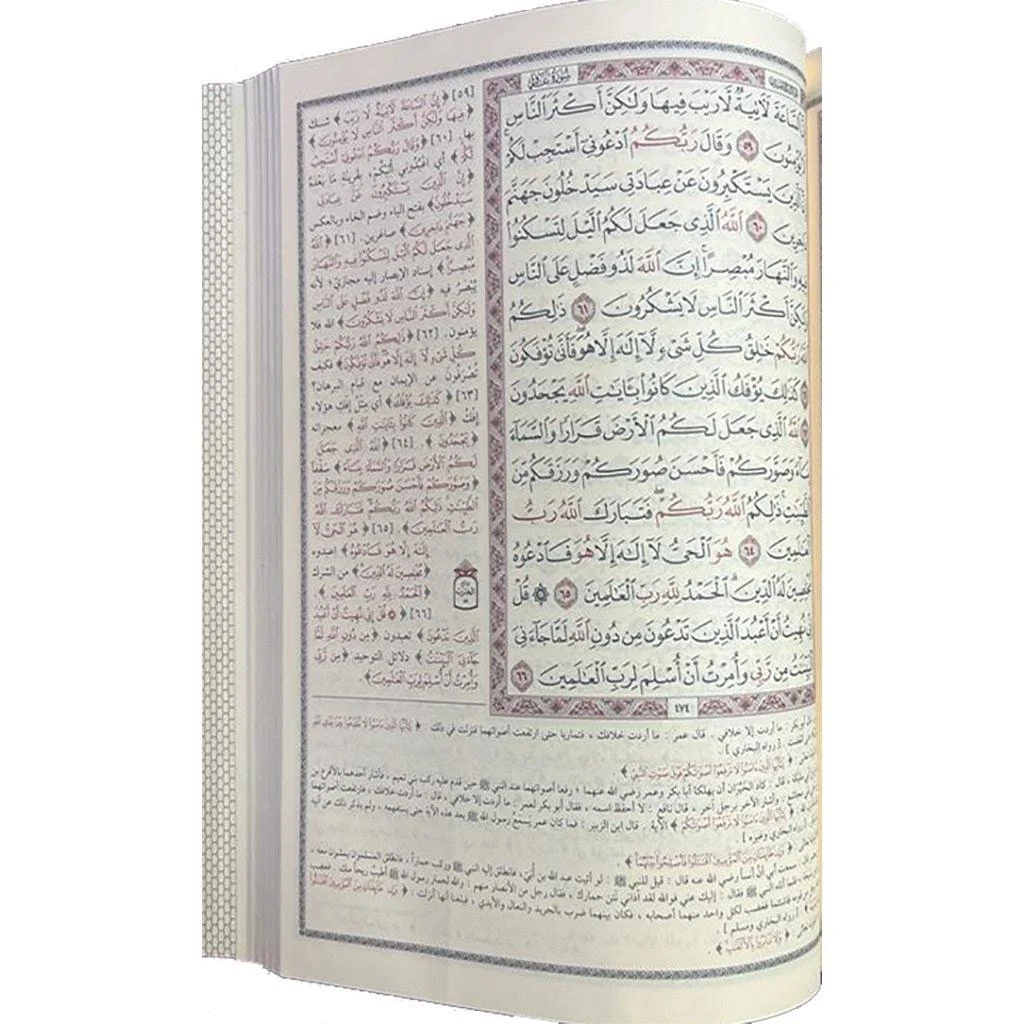 سُورَةُ غَافِر
لَآتِيَةٌ لَّا رَيْبَ فِيهَا وَلَٰكِنَّ أَكْثَرَ النَّاسِ
٥٩ وَقَالَ رَبُّكُمُ ادْعُونِي أَسْتَجِبْ لَكُمْ
يَسْتَكْبِرُونَ عَنْ عِبَادَتِي سَيَدْخُلُونَ جَهَنَّمَ
٦٠ اللَّهُ الَّذِي جَعَلَ لَكُمُ اللَّيْلَ لِتَسْكُنُوا
وَالنَّهَارَ مُبْصِرًا إِنَّ اللَّهَ لَذُو فَضْلٍ عَلَى النَّاسِ
أَكْثَرَ النَّاسِ لَا يَشْكُرُونَ ٦١ ذَٰلِكُمُ
رَبُّكُمْ خَالِقُ كُلِّ شَيْءٍ لَّا إِلَٰهَ إِلَّا هُوَ فَأَنَّىٰ تُؤْفَكُونَ
كَذَٰلِكَ يُؤْفَكُ الَّذِينَ كَانُوا بِآيَاتِ اللَّهِ يَجْحَدُونَ
اللَّهُ الَّذِي جَعَلَ لَكُمُ الْأَرْضَ قَرَارًا وَالسَّمَاءَ
وَصَوَّرَكُمْ فَأَحْسَنَ صُوَرَكُمْ وَرَزَقَكُم مِّنَ
ذَٰلِكُمُ اللَّهُ رَبُّكُمْ فَتَبَارَكَ اللَّهُ رَبُّ
٦٤ هُوَ الْحَيُّ لَا إِلَٰهَ إِلَّا هُوَ فَادْعُوهُ
لَهُ الدِّينَ الْحَمْدُ لِلَّهِ رَبِّ الْعَالَمِينَ ٦٥ ۞ قُلْ
نُهِيتُ أَنْ أَعْبُدَ الَّذِينَ تَدْعُونَ مِن دُونِ اللَّهِ لَمَّا جَاءَنِيَ
مِن رَّبِّي وَأُمِرْتُ أَنْ أُسْلِمَ لِرَبِّ الْعَالَمِينَ ٦٦
٤٧٤
[٥٩] ﴿إِنَّ السَّاعَةَ لَآتِيَةٌ لَّا رَيْبَ﴾ شك
﴿فِيهَا وَلَٰكِنَّ أَكْثَرَ النَّاسِ لَا يُؤْمِنُونَ﴾
بها. [٦٠] ﴿وَقَالَ رَبُّكُمُ ادْعُونِي أَسْتَجِبْ
لَكُمْ﴾ أي اعبدوني أثبكم، بقرينة ما بعده
﴿إِنَّ الَّذِينَ يَسْتَكْبِرُونَ عَنْ عِبَادَتِي
سَيَدْخُلُونَ﴾ بفتح الياء وضم الخاء وبالعكس
﴿جَهَنَّمَ دَاخِرِينَ﴾ صاغرين. [٦١] ﴿اللَّهُ
الَّذِي جَعَلَ لَكُمُ اللَّيْلَ لِتَسْكُنُوا فِيهِ وَالنَّهَارَ
مُبْصِرًا﴾ إسناد الإبصار إليه مجازي؛ لأنه
يُبْصَرُ فيه ﴿إِنَّ اللَّهَ لَذُو فَضْلٍ عَلَى النَّاسِ
وَلَٰكِنَّ أَكْثَرَ النَّاسِ لَا يَشْكُرُونَ﴾ الله فلا
يؤمنون. [٦٢] ﴿ذَٰلِكُمُ اللَّهُ رَبُّكُمْ خَالِقُ
كُلِّ شَيْءٍ لَّا إِلَٰهَ إِلَّا هُوَ فَأَنَّىٰ تُؤْفَكُونَ﴾ فكيف
تُصْرَفُونَ عن الإيمان مع قيام البرهان؟
[٦٣] ﴿كَذَٰلِكَ يُؤْفَكُ﴾ أي مثل إفك هؤلاء
إفك ﴿الَّذِينَ كَانُوا بِآيَاتِ اللَّهِ﴾ معجزاته
﴿يَجْحَدُونَ﴾. [٦٤] ﴿اللَّهُ الَّذِي جَعَلَ
لَكُمُ الْأَرْضَ قَرَارًا وَالسَّمَاءَ بِنَاءً﴾ سقفاً
﴿وَصَوَّرَكُمْ فَأَحْسَنَ صُوَرَكُمْ وَرَزَقَكُم مِّنَ
الطَّيِّبَاتِ ذَٰلِكُمُ اللَّهُ رَبُّكُمْ فَتَبَارَكَ اللَّهُ
رَبُّ الْعَالَمِينَ﴾. [٦٥] ﴿هُوَ الْحَيُّ لَا
إِلَٰهَ إِلَّا هُوَ فَادْعُوهُ﴾ اعبدوه
﴿مُخْلِصِينَ لَهُ الدِّينَ﴾ من الشرك
﴿الْحَمْدُ لِلَّهِ رَبِّ الْعَالَمِينَ﴾
[٦٦] ﴿۞ قُلْ إِنِّي نُهِيتُ أَنْ أَعْبُدَ
الَّذِينَ تَدْعُونَ﴾ تعبدون ﴿مِن دُونِ اللَّهِ لَمَّا
جَاءَنِيَ الْبَيِّنَاتُ﴾ دلائل التوحيد ﴿مِن رَّبِّي
وَأُمِرْتُ أَنْ أُسْلِمَ لِرَبِّ الْعَالَمِينَ﴾.
ما أردت إلا خلافي. قال عمر: ما أردت خلافك، فتماريا حتى ارتفعت أصواتهما فنزلت في ذلك:
[رواه البخاري].
﴿يَا أَيُّهَا الَّذِينَ آمَنُوا لَا تَرْفَعُوا أَصْوَاتَكُمْ فَوْقَ صَوْتِ النَّبِيِّ﴾
قال: كاد الخيِّران أن يهلكا أبا بكر وعمر رضي الله عنهما؛ رفعا أصواتهما عند النبي ﷺ حين قدم عليه ركب بني تميم، فأشار أحدهما بالأقرع بن
وأشار الآخر برجل آخر، قال نافع: لا أحفظ اسمه، فقال أبو بكر لعمر: ما أردت إلا خلافي، قال: ما أردت خلافك، فارتفعت أصواتهما
الآية. قال ابن الزبير: فما كان عمر يُسْمِعُ رسول الله ﷺ بعد هذه الآية حتى يستفهمه، ولم يذكر ذلك عن أبيه
رواه البخاري وغيره].
سمعت أبي أنَّ أنساً رضي الله عنه قال: قيل للنبي ﷺ: لو أتيت عبد الله بن أُبَيّ، فانطلق إليه النبي ﷺ وركب حماراً، فانطلق المسلمون يمشون معه
فلما أتاه النبي ﷺ فقال: إليك عني فوالله لقد آذاني نتن حمارك، فقال رجل من الأنصار منهم: والله لحمار رسول الله ﷺ أطيب ريحاً منك
فغضب لكل واحد منهما أصحابه، فكان بينهما ضرب بالجريد والنعال والأيدي، فبلغنا أنها أنزلت:
[رواه البخاري ومسلم].
﴿وَلَا تَنَابَزُوا بِالْأَلْقَابِ﴾.